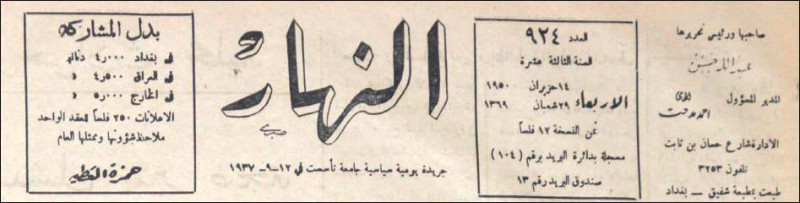 صاحبها ورئيس تحريرها
عبد الله حسن
المدير المسؤول
احمد مدحت
الادارة شارع حسان بن ثابت
تلفون ٣٢٥٣
طبعت بمطبعة شفيق — بغداد
العدد ٩٢٤
السنة الثالثة عشرة
الاربعاء
١٤ حزيران ١٩٥٠
٢٩ شعبان ١٣٦٩
ثمن النسخة ١٢ فلساً
مسجلة بدائرة البريد برقم (١٠٤)
صندوق البريد رقم ١٣
النهار
جريدة يومية سياسية جامعة تأسست في ١٢-٩-١٩٣٧
بدل المشاركة
في بغداد ٤٫٠٠٠ دنانير
في العراق ٤٫٥٠٠ »
في الخارج ٥٫٠٠٠ »
الاعلانات ٢٥٠ فلساً للعقد الواحد
ملاحظ شؤونها وممثلها العام
حمزة